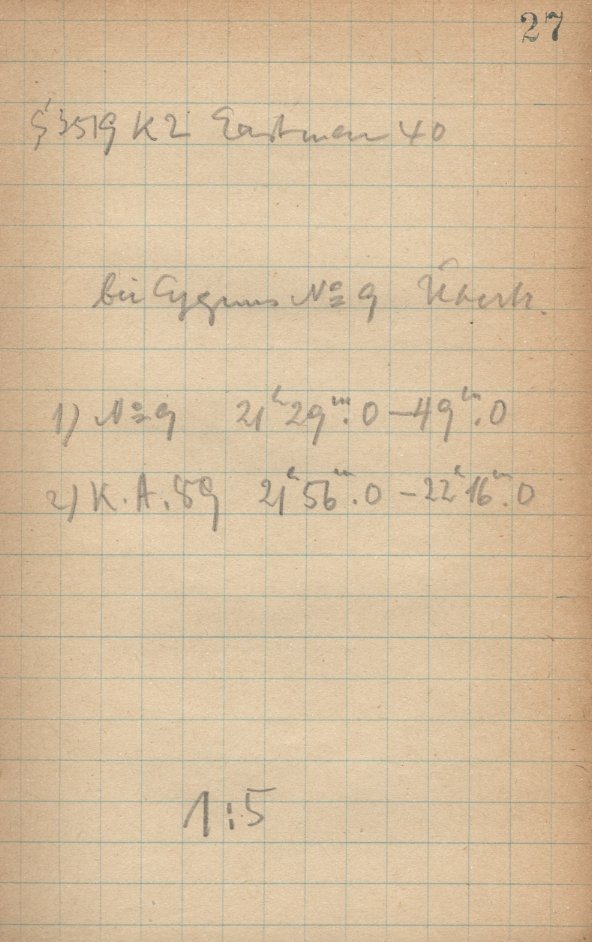 27
3519 K2 Eastman 40
bei Cygnus № 9
1) № 9 21ʰ29ᵐ.0 – 49ᵐ.0
2) K.A. 89 21ʰ56ᵐ.0 – 22ʰ16ᵐ.0
1:5